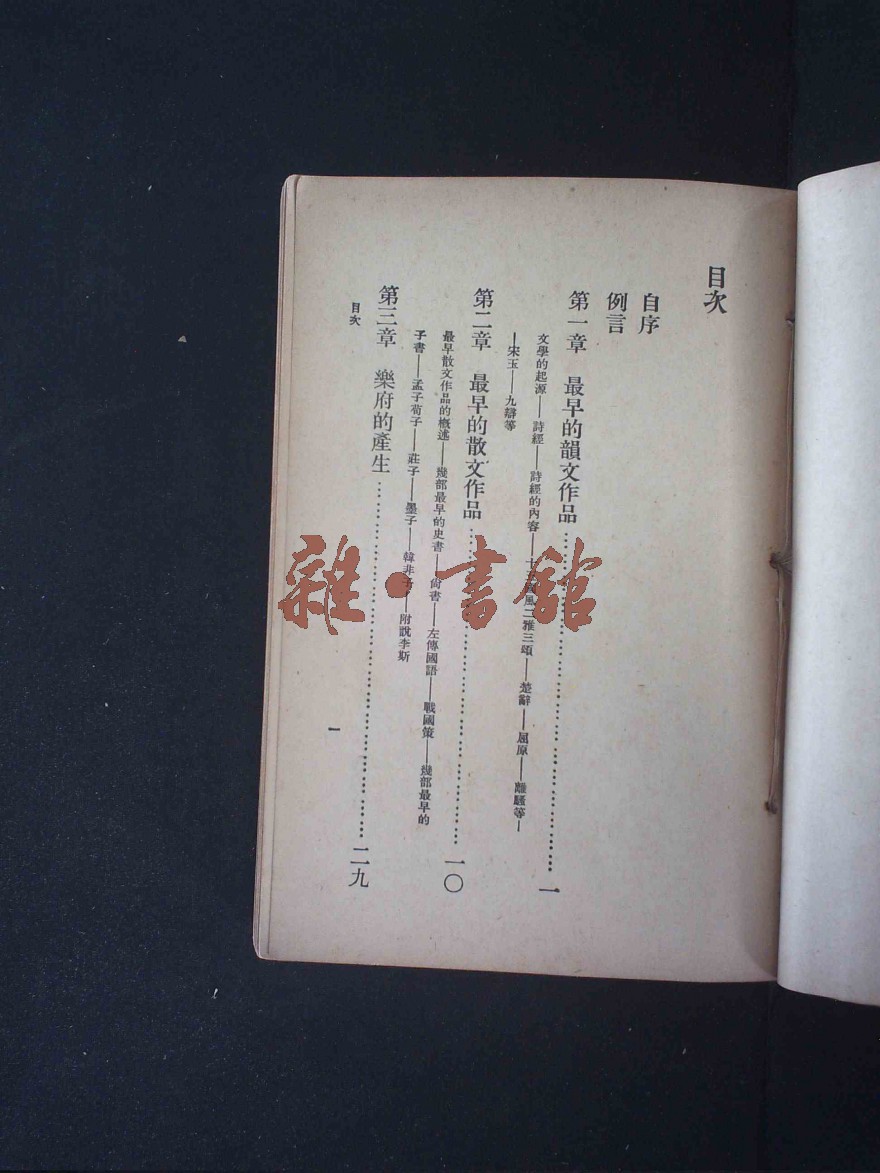 目次
自序
例言
第一章　最早的韻文作品…………一
文學的起源——詩經——詩經的內容——十五國風二雅三頌——楚辭——屈原——離騷等—
—宋玉——九辯等
第二章　最早的散文作品…………一〇
最早散文作品的概述——幾部最早的史書——尙書——左傳國語——戰國策——幾部最早的
子書——孟子荀子——莊子——墨子——韓非子——附說李斯
第三章　樂府的產生…………二九
目次
一
雜·書館